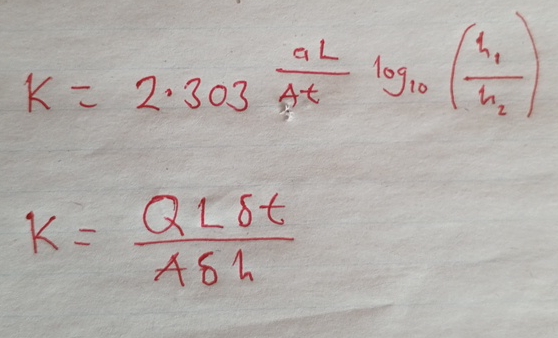 K = 2.303 aL/At log₁₀ (h₁/h₂)
K = QLδt/Aδh